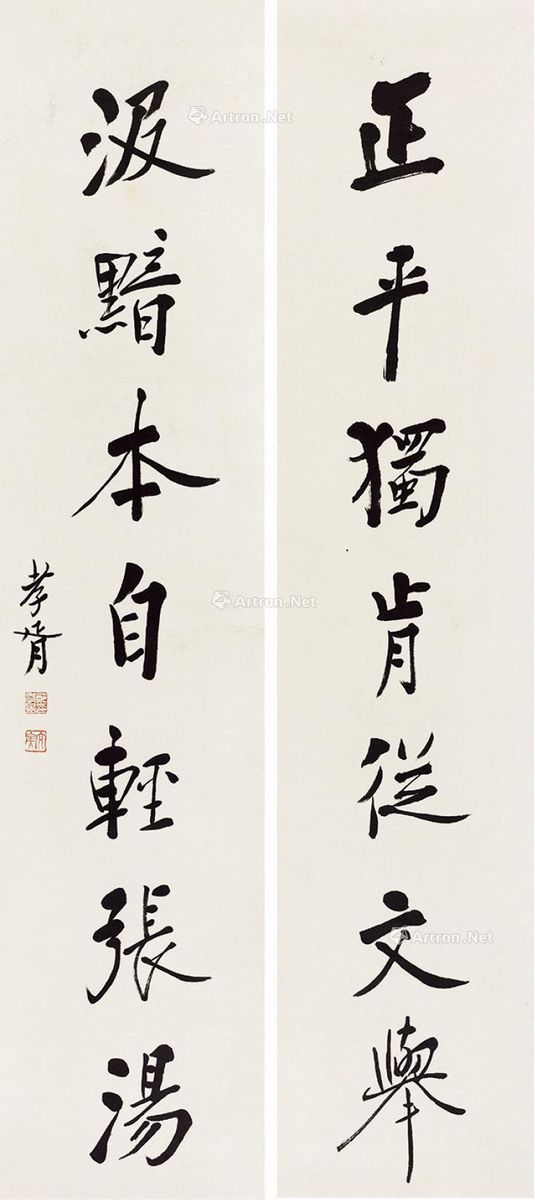 正平獨肯從文舉
汲黯本自輕張湯
孝胥
Artron.Net
Artron.Net
Artron.Net
Artron.Net